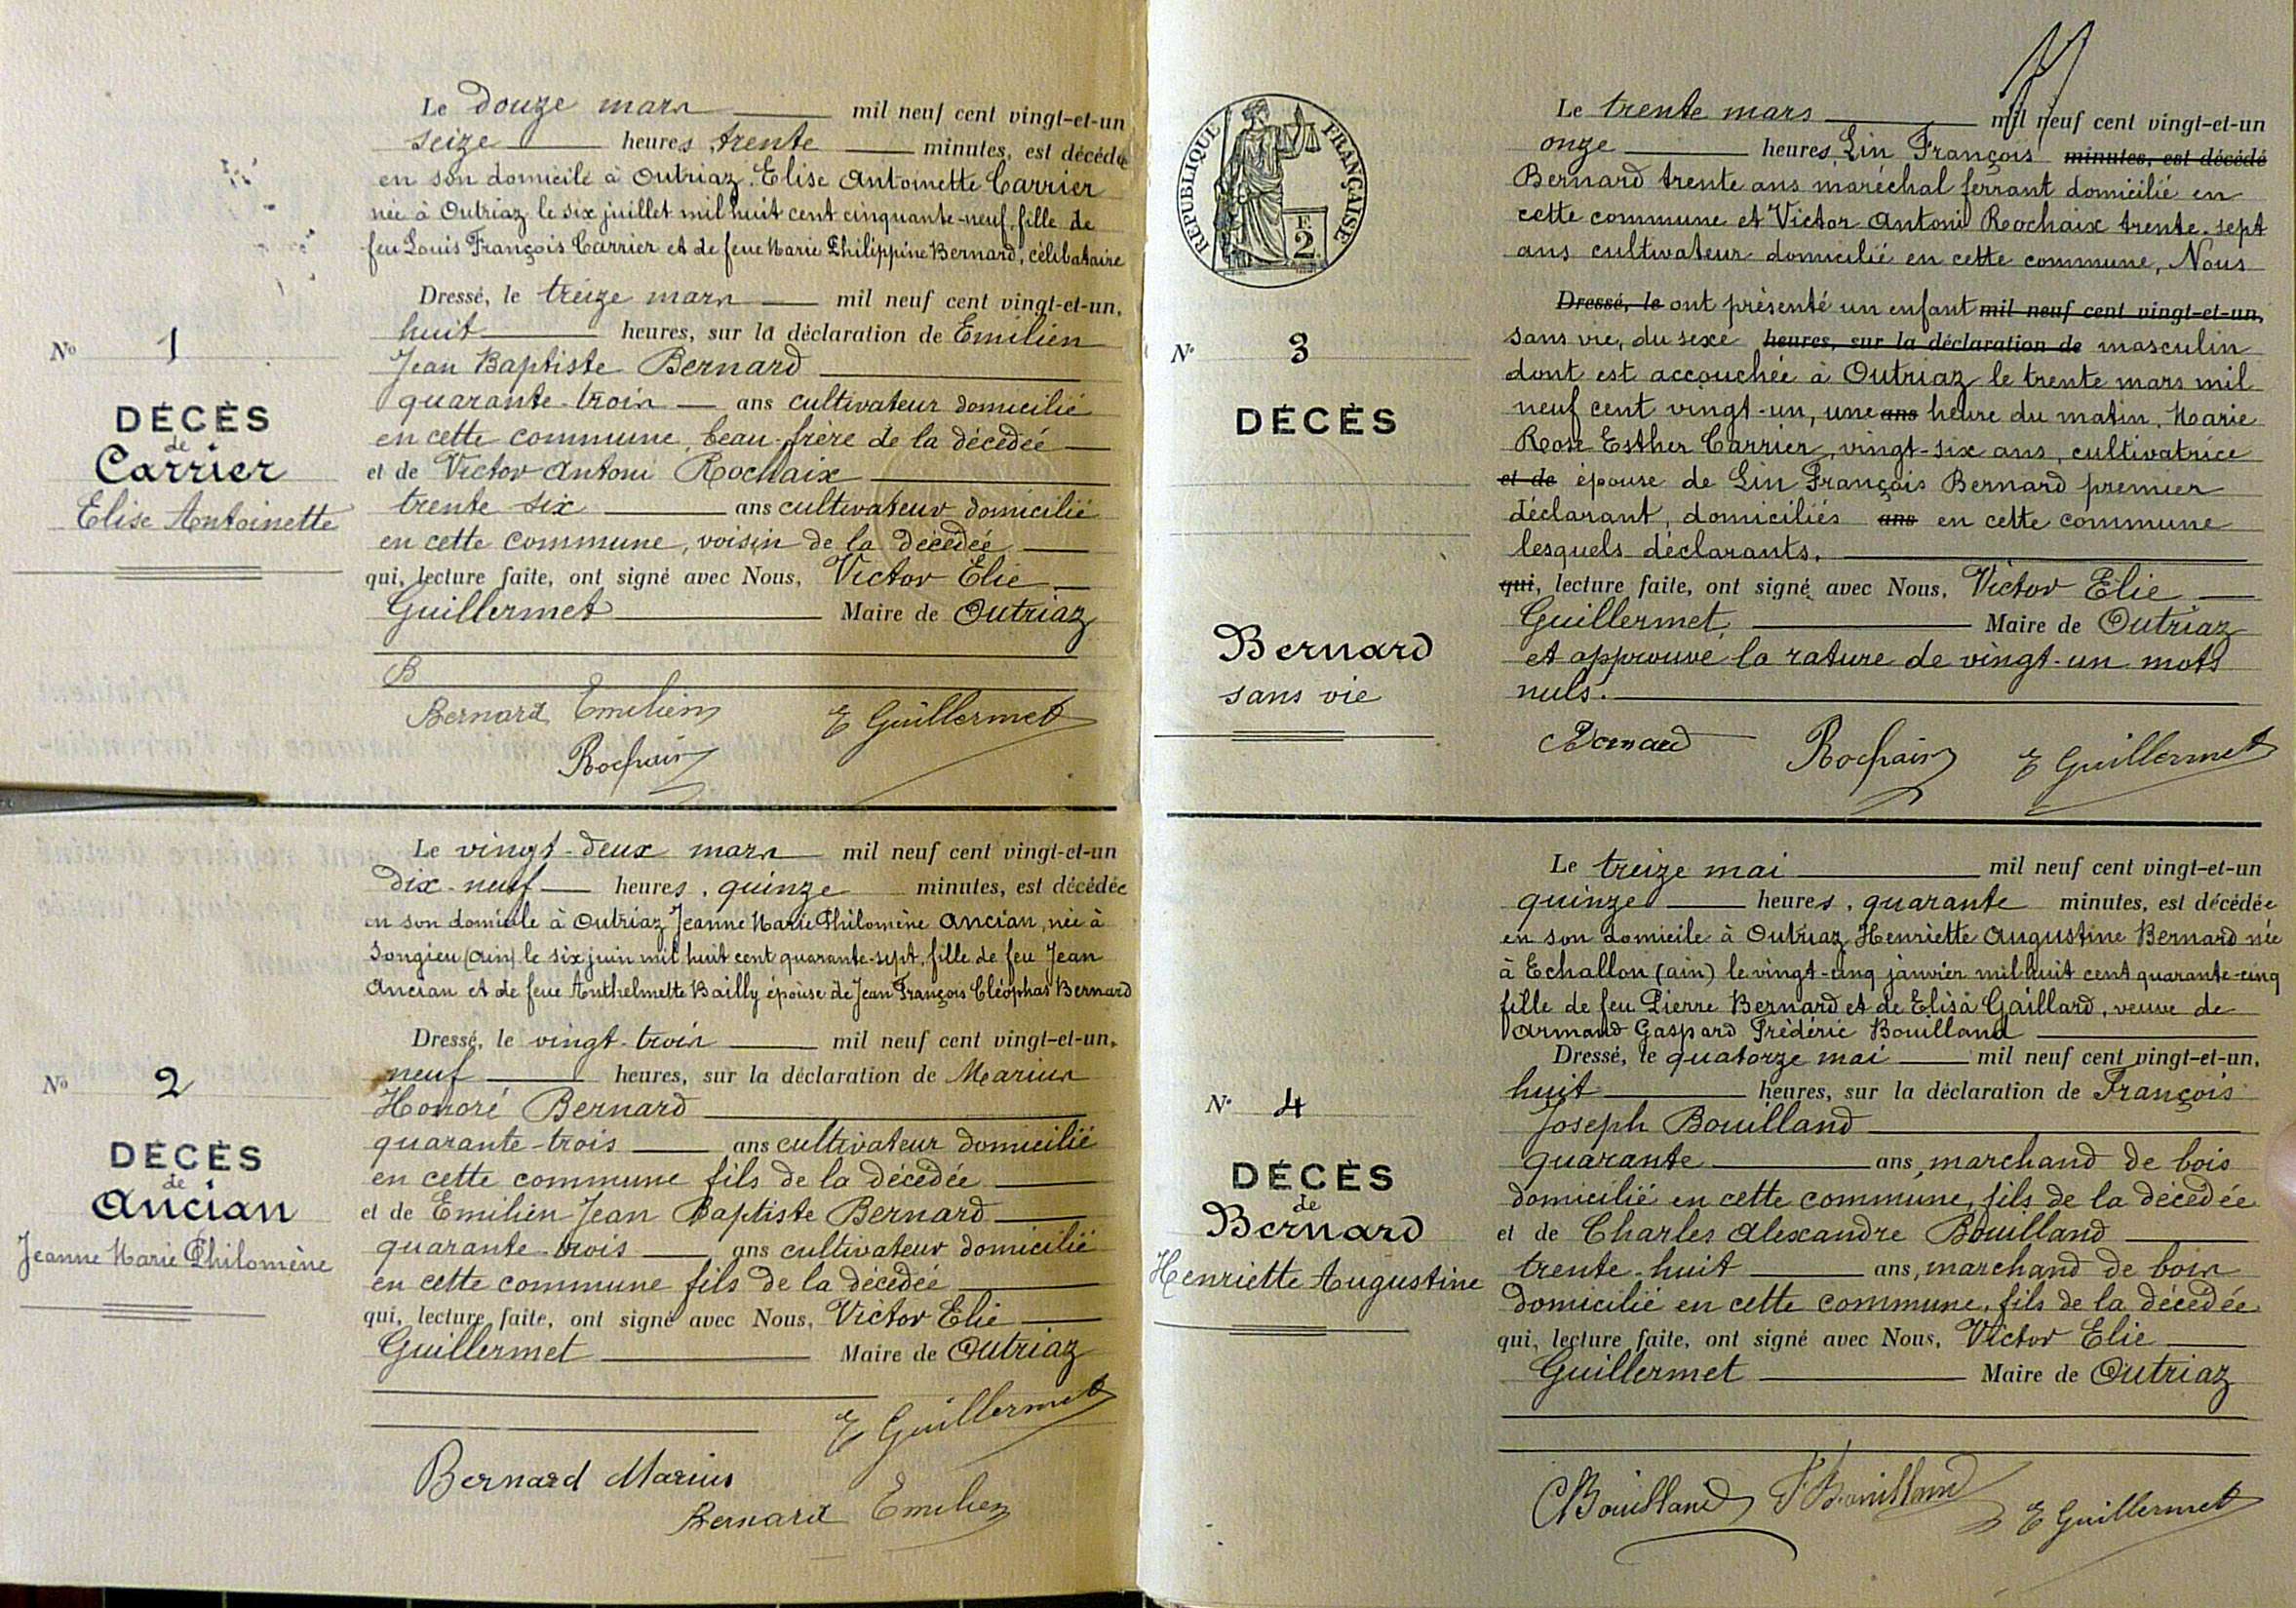 Le douze mars mil neuf cent vingt-et-un
seize heures trente minutes, est décédée
en son domicile à Outriaz. Elise Antoinette Carrier
née à Outriaz le six juillet mil huit cent cinquante-neuf, fille de
feu Louis François Carrier et de feue Marie Philippine Bernard, célibataire
Dressé, le treize mars mil neuf cent vingt-et-un,
huit heures, sur la déclaration de Emilien
Jean Baptiste Bernard
quarante-trois ans cultivateur domicilié
en cette commune, beau-frère de la décédée
et de Victor Antoni Rochaix
trente six ans cultivateur domicilié
en cette commune, voisin de la décédée
qui, lecture faite, ont signé avec Nous, Victor Elie
Guillermet Maire de Outriaz
B
Bernard Emilien E Guillermet
Rochaix
No 1
DÉCÈS
de
Carrier
Elise Antoinette
Le vingt-deux mars mil neuf cent vingt-et-un
dix-neuf heures, quinze minutes, est décédée
en son domicile à Outriaz Jeanne Marie Philomène Ancian, née à
Songieu (Ain) le six juin mil huit cent quarante-sept, fille de feu Jean
Ancian et de feue Anthelmette Bailly épouse de Jean François Cléophas Bernard
Dressé, le vingt-trois mil neuf cent vingt-et-un,
neuf heures, sur la déclaration de Marius
Honoré Bernard
quarante-trois ans cultivateur domicilié
en cette commune fils de la décédée
et de Emilien Jean Baptiste Bernard
quarante-trois ans cultivateur domicilié
en cette commune fils de la décédée
qui, lecture faite, ont signé avec Nous, Victor Elie
Guillermet Maire de Outriaz
E Guillermet
Bernard Marius
Bernard Emilien
No 2
DÉCÈS
de
Ancian
Jeanne Marie Philomène
RÉPUBLIQUE FRANÇAISE
F.
2
Le trente mars mil neuf cent vingt-et-un
onze heures Lin François minutes, est décédé
Bernard trente ans maréchal ferrant domicilié en
cette commune et Victor Antoni Rochaix trente-sept
ans cultivateur domicilié en cette commune, Nous
Dressé, le ont présenté un enfant mil neuf cent vingt-et-un,
sans vie, du sexe heures, sur la déclaration de masculin
dont est accouchée à Outriaz le trente mars mil
neuf cent vingt-un, une ans heure du matin, Marie
Rose Esther Carrier, vingt-six ans, cultivatrice
et de épouse de Lin François Bernard premier
déclarant, domiciliés ans en cette commune
lesquels déclarants,
qui, lecture faite, ont signé avec Nous, Victor Elie
Guillermet, Maire de Outriaz
et approuvé la rature de vingt-un mots
nuls.
Bernard Rochaix E Guillermet
No 3
DÉCÈS
Bernard
sans vie
Le treize mai mil neuf cent vingt-et-un
quinze heures, quarante minutes, est décédée
en son domicile à Outriaz Henriette Augustine Bernard née
à Echallon (Ain) le vingt-cinq janvier mil huit cent quarante-cinq
fille de feu Pierre Bernard et de Elisa Gaillard, veuve de
Armand Gaspard Frédéric Bouilland
Dressé, le quatorze mai mil neuf cent vingt-et-un,
huit heures, sur la déclaration de François
Joseph Bouilland
quarante ans, marchand de bois
domicilié en cette commune, fils de la décédée
et de Charles Alexandre Bouilland
trente-huit ans, marchand de bois
domicilié en cette commune, fils de la décédée
qui, lecture faite, ont signé avec Nous, Victor Elie
Guillermet Maire de Outriaz
C Bouilland F Bouilland E Guillermet
No 4
DÉCÈS
de
Bernard
Henriette Augustine